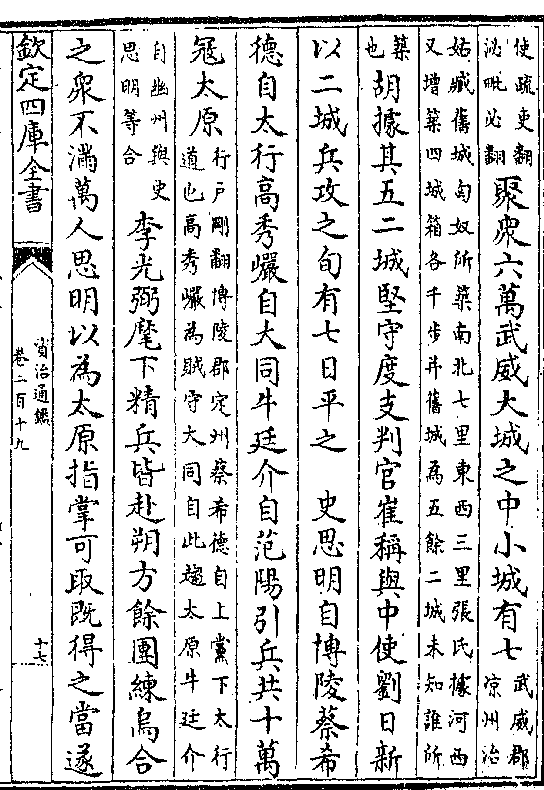 使疏吏翻
泌毗必翻
聚衆六萬武威大城之中小城有七
武威郡
凉州治
姑臧舊城匈奴所築南北七里東西三里張氏據河西
又增築四城箱各千步并舊城為五餘二城未知誰所
築
也
胡據其五二城堅守度支判官崔稱與中使劉日新
以二城兵攻之旬有七日平之 史思明自博陵蔡希
德自太行高秀巖自大同牛廷介自范陽引兵共十萬
冦太原
行戸剛翻博陵郡定州蔡希德自上黨下太行
道也高秀巖為賊守大同自此趨太原牛廷介
自幽州與史
思明等合
李光弼麾下精兵皆赴朔方餘團練烏合
之衆不滿萬人思明以為太原指掌可取既得之當遂
欽定四庫全書
資治通鑑
卷二百十九
十七